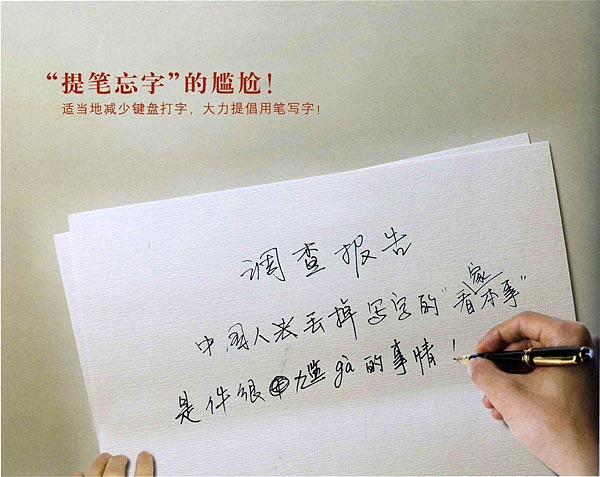 “提笔忘字”的尴尬！
适当地减少键盘打字，大力提倡用笔写字！
调查报告
家
中国人丢掉写字的“看本事”
是件很尴gà的事情！